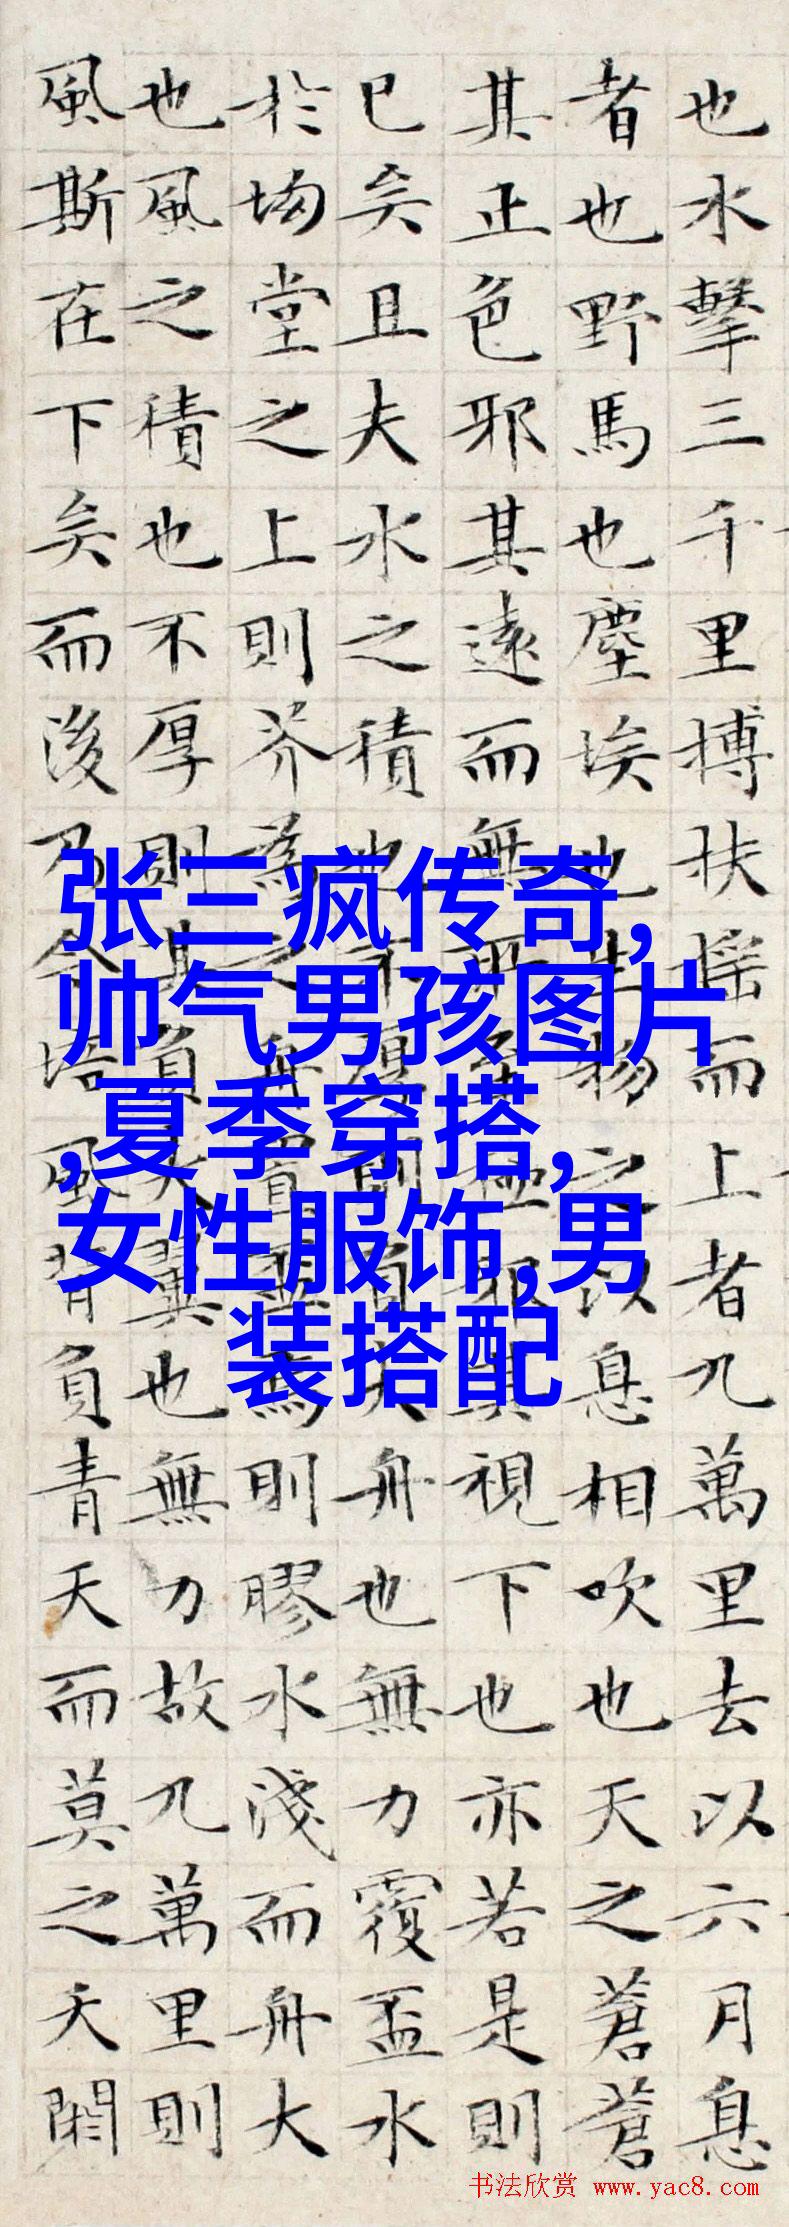 也水擊三千里搏扶搖而上者九萬里去以六月息
者也野馬也塵埃也生物之以息相吹也天之蒼蒼
其正色邪其遠而無所至極邪其視下也亦若是則
已矣且夫水之積也不厚則負大舟也無力覆盃水
於坳堂之上則芥為之舟置盃焉則膠水淺而舟大
也風之積也不厚則其負大翼也無力故九萬里則
風斯在下矣而後乃今培風背負青天而莫之夭閼
张三疯传奇,
帅气男孩图片
,夏季穿搭,
女性服饰,男
装搭配
书法欣赏 www.yac8.com